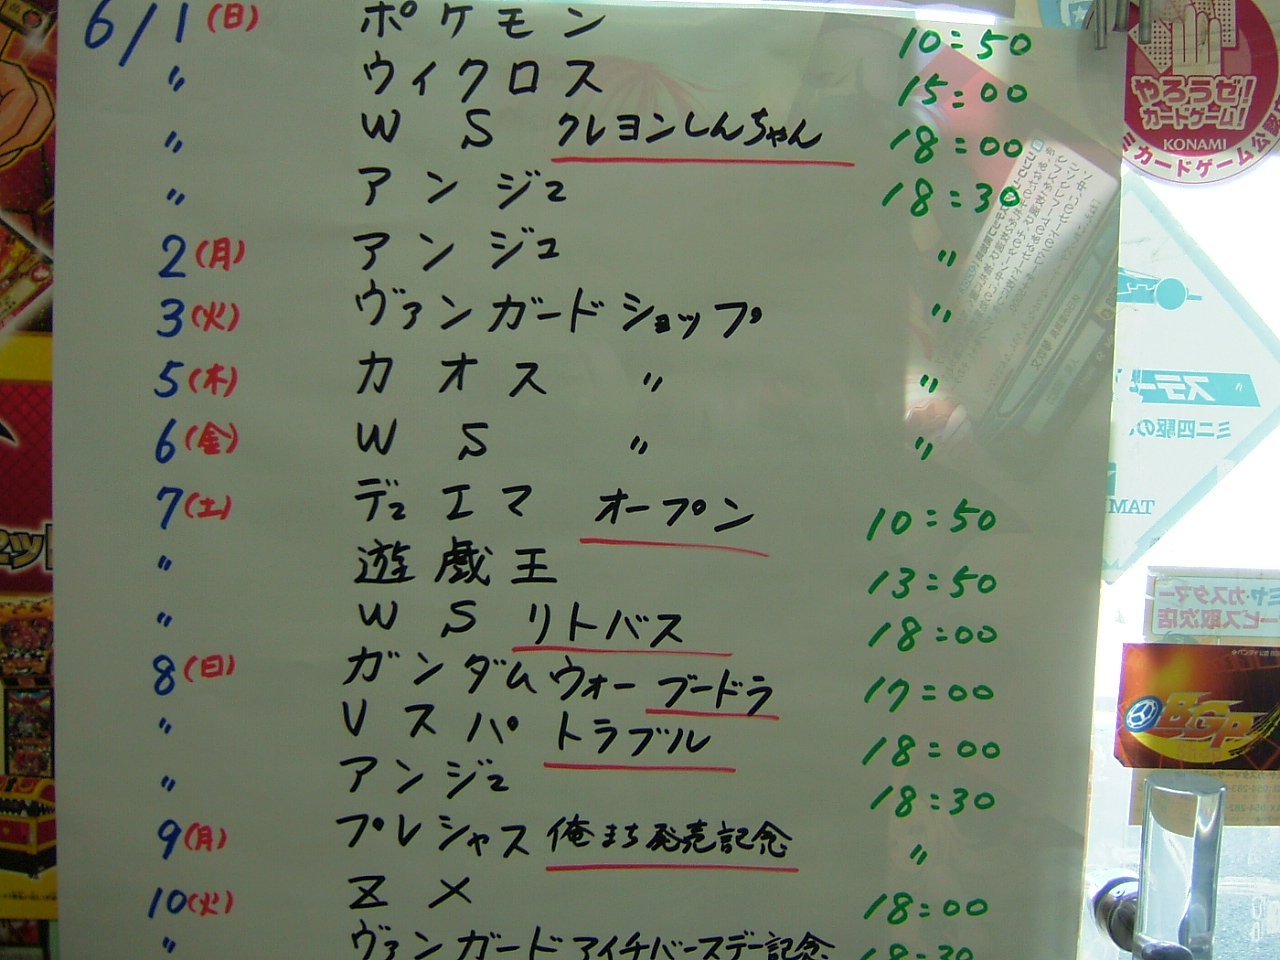 6/1(日) ポケモン 10:50
〃 ウィクロス 15:00
〃 WS クレヨンしんちゃん 18:00
〃 アンジュ 18:30
2(月) アンジュ 〃
3(火) ヴァンガードショップ 〃
5(木) カオス 〃 〃
6(金) WS 〃 〃
7(土) デュエマ オープン 10:50
〃 遊戯王 13:50
〃 WS リトバス 18:00
8(日) ガンダムウォー ブードラ 17:00
〃 Vスパ トラブル 18:00
〃 アンジュ 18:30
9(月) プレシャス 俺まち発売記念 〃
10(火) ZX 18:00
〃 ヴァンガード アイチバースデー記念 18:30
やろうぜ!
カードゲーム!
KONAMI
カードゲーム公認
ステー
ミニ四駆の
TAM
ミヤ・カスタマー
ービス取次店
BGP